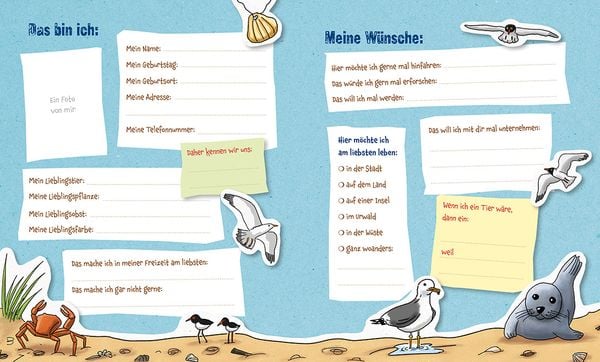 Das bin ich:
Ein Foto
von mir:
Mein Name:
Mein Geburtstag:
Mein Geburtsort:
Meine Adresse:
Meine Telefonnummer:
Daher kennen wir uns:
Mein Lieblingstier:
Meine Lieblingspflanze:
Mein Lieblingsobst:
Meine Lieblingsfarbe:
Das mache ich in meiner Freizeit am liebsten:
Das mache ich gar nicht gerne:
Meine Wünsche:
Hier möchte ich gerne mal hinfahren:
Das würde ich gern mal erforschen:
Das will ich mal werden:
Hier möchte ich
am liebsten leben:
in der Stadt
auf dem Land
auf einer Insel
im Urwald
in der Wüste
ganz woanders:
Das will ich mit dir mal unternehmen:
Wenn ich ein Tier wäre,
dann ein:
weil